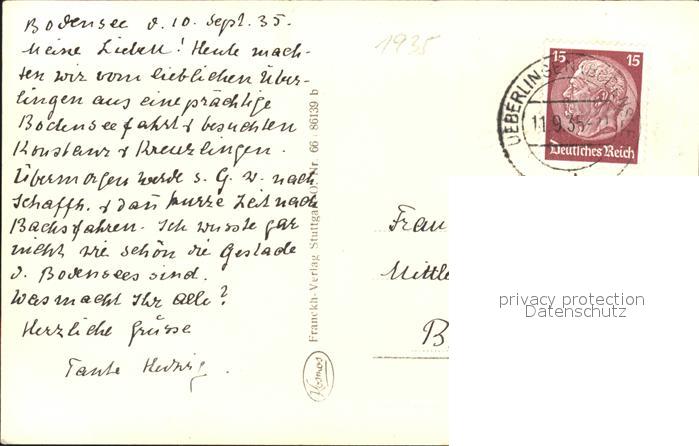 Bodensee d. 10. Sept. 35.
Meine Lieben! Heute mach-
ten wir vom lieblichen Über-
lingen aus eine prächtige
Bodenseefahrt & besuchten
Konstanz & Kreuzlingen.
Übermorgen werde s. G. w. nach
Schaffh. & dan kurze Zeit nach
Bachs fahren. Ich wusste gar
nicht wie schön die Gestade
d. Bodensees sind.
Was macht Ihr alle?
Herzliche Grüsse
Tante Hedwig.
Franckh-Verlag Stuttgart-O. Nr. 66. 86139 b
Kosmos
1935
15 15
Deutsches Reich
UEBERLINGEN
11.9.35
Frau
Mittle
B
privacy protection
Datenschutz